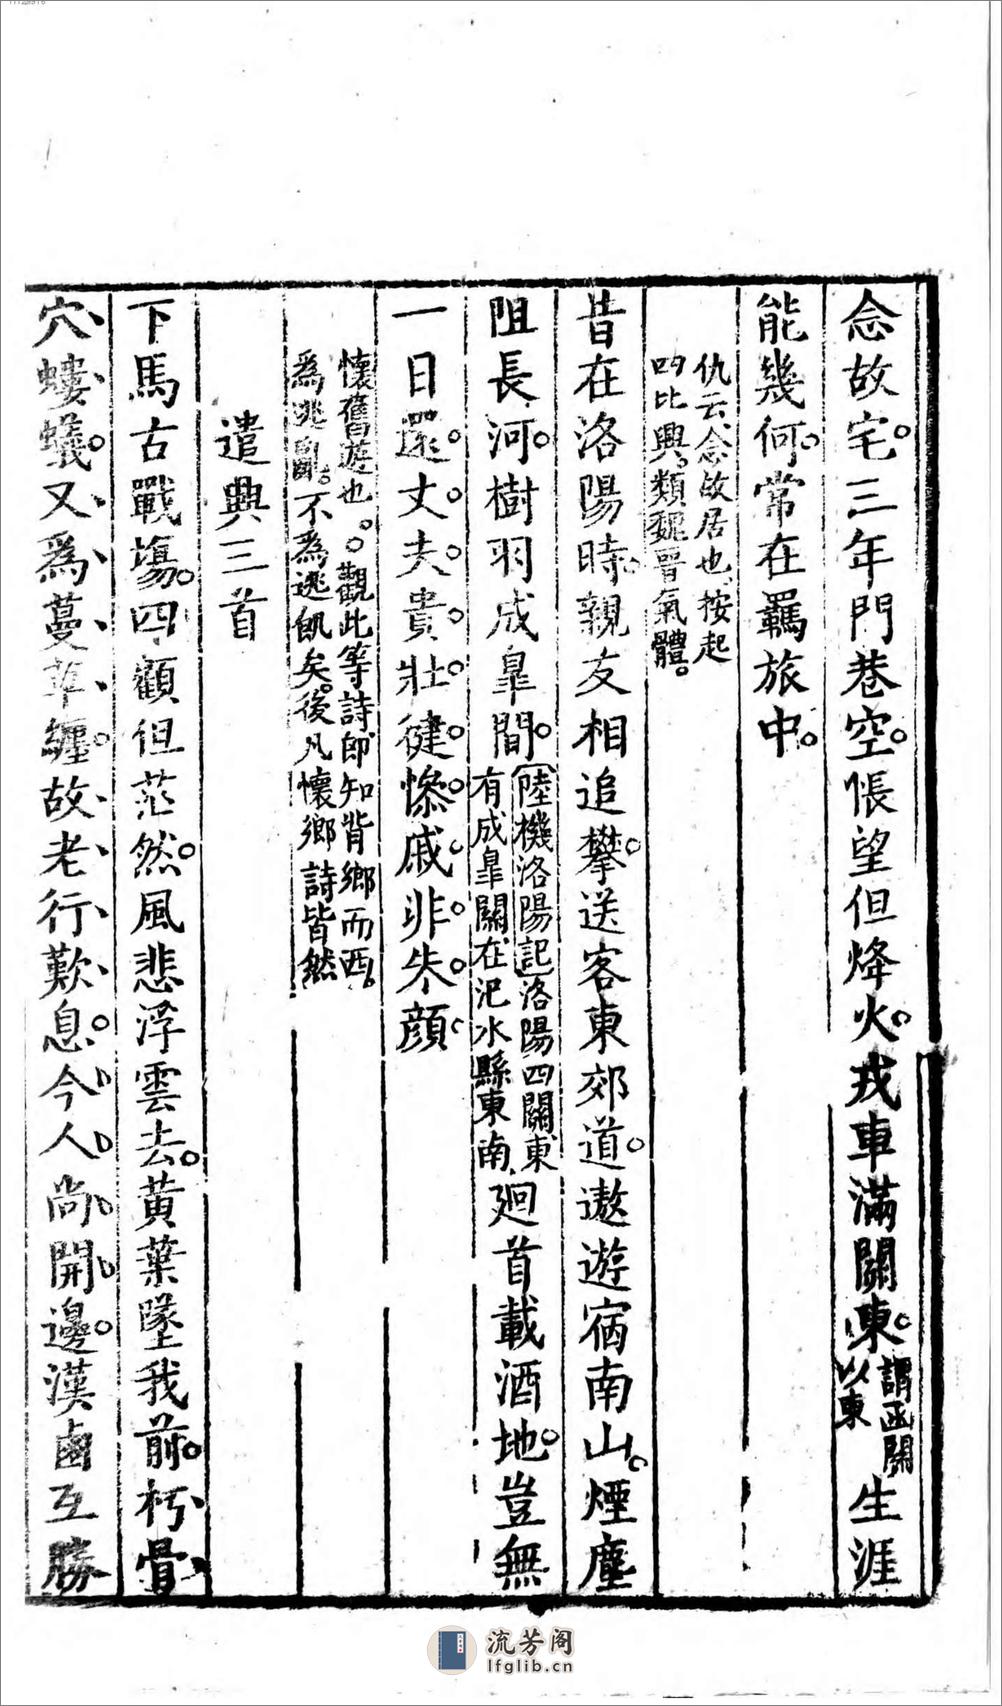 念故宅三年門巷空悵望但烽火戎車滿關東謂函關以東生涯
能幾何常在羈旅中
仇云念故居也按起
四比興類魏晉氣體
昔在洛陽時親友相追攀送客東郊道遨遊宿南山煙塵
阻長河樹羽成皐間陸機洛陽記洛陽四關東有成皐關在汜水縣東南廻首載酒地豈無
一日還丈夫貴壯健慘戚非朱顔
懷舊遊也。觀此等詩即知背鄉而西
為逃亂不為逃飢矣後凡懷鄉詩皆然
遣興三首
下馬古戰場四顧但茫然風悲浮雲去黄葉墜我前朽骨
穴螻蟻又為蔓草纏故老行歎息今人尚開邊漢鹵互勝
流芳阁
lfglib.cn